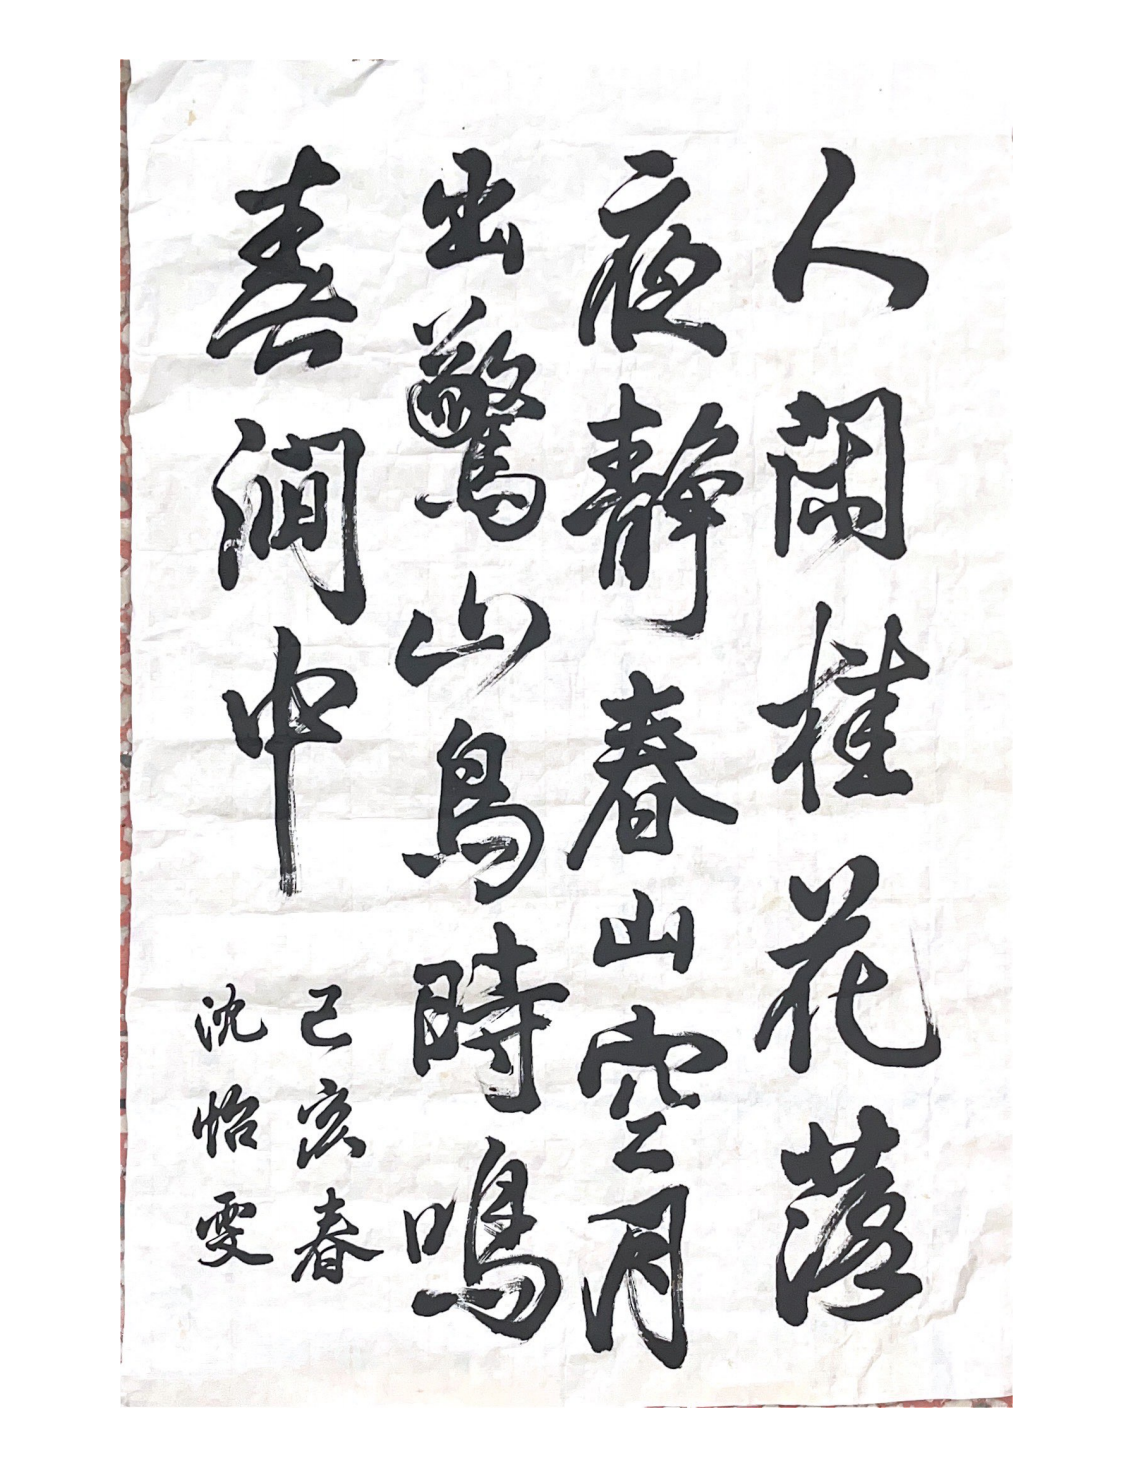 人閑桂花落
夜靜春山空月
出驚山鳥時鳴
春澗中
己亥春
沈怡雯